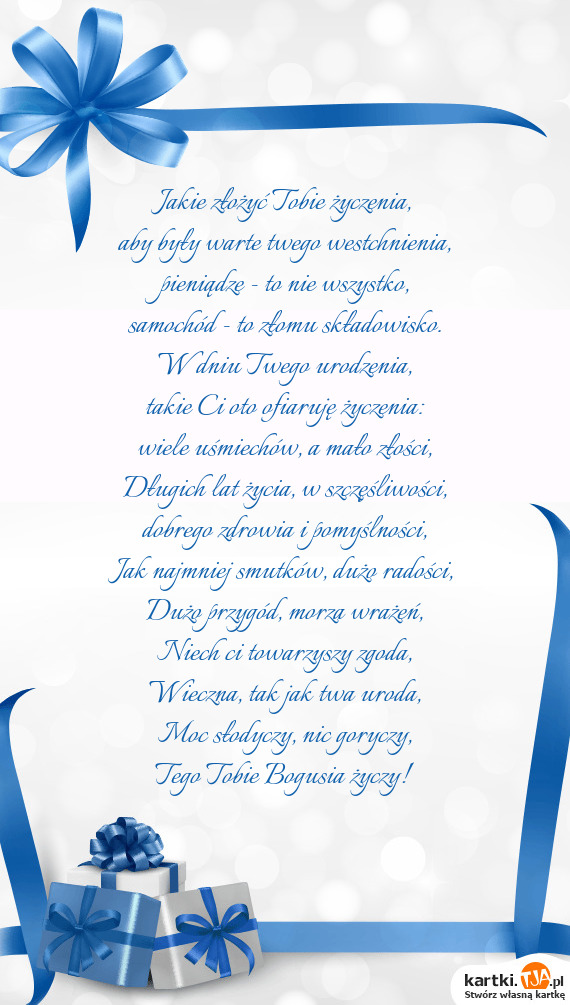 Jakie złożyć Tobie życzenia,
aby były warte twego westchnienia,
pieniądze - to nie wszystko,
samochód - to złomu składowisko.
W dniu Twego urodzenia,
takie Ci oto ofiaruję życzenia:
wiele uśmiechów, a mało złości,
Długich lat życia, w szczęśliwości,
dobrego zdrowia i pomyślności,
Jak najmniej smutków, dużo radości,
Dużo przygód, morza wrażeń,
Niech ci towarzyszy zgoda,
Wieczna, tak jak twa uroda,
Moc słodyczy, nic goryczy,
Tego Tobie Bogusia życzy!
kartki.TJA.pl
Stwórz własną kartkę